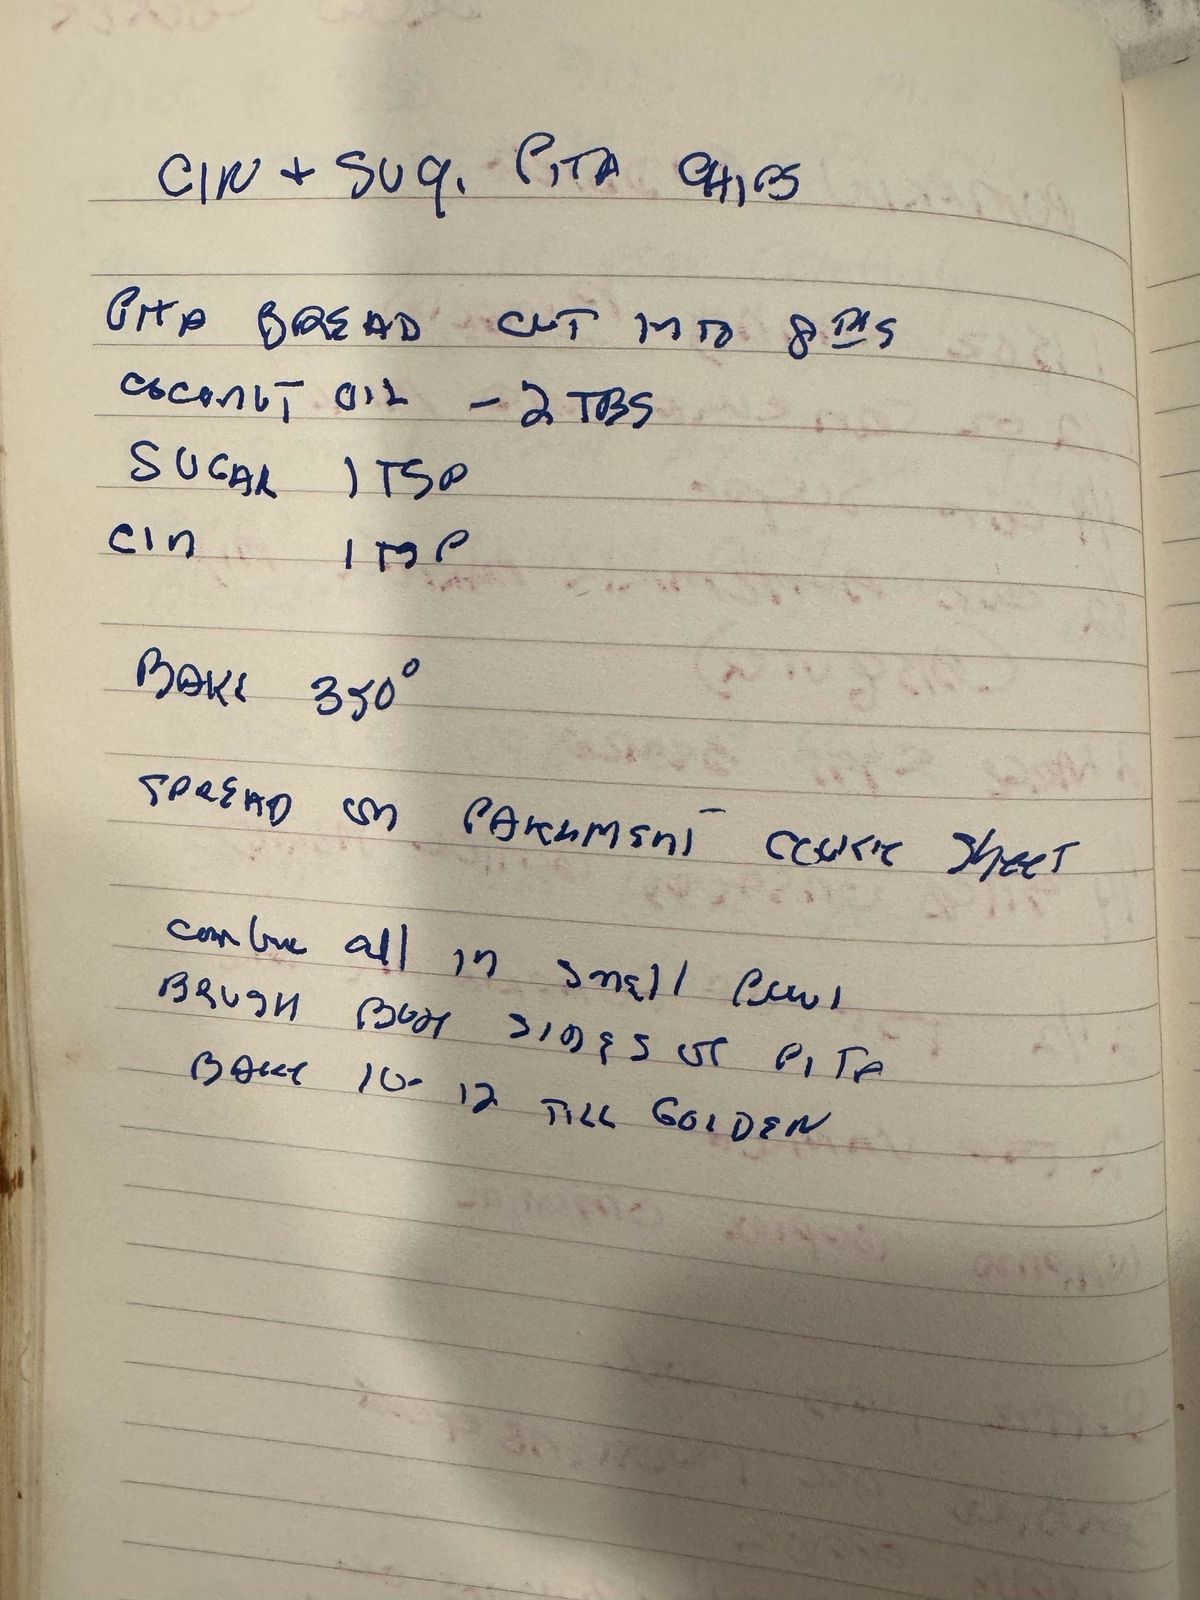 CIN + SUG. PITA CHIPS
PITA BREAD CUT INTO 8THS
COCONUT OIL - 2 TBS
SUGAR 1 TSP
CIN 1 TSP
BAKE 350°
SPREAD ON PARCHMENT COOKIE SHEET
combine all in small bowl
BRUSH BOTH SIDES OF PITA
BAKE 10-12 TILL GOLDEN